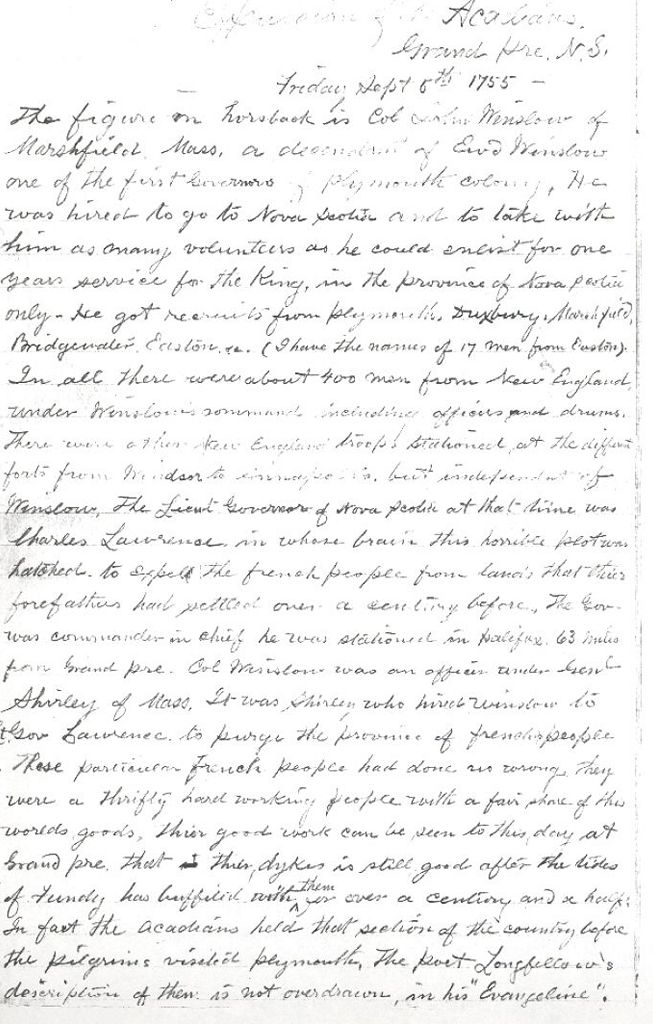 Expulsion of the Acadians.
Grand Pre. N.S.
Friday Sept 5th 1755 —
The figure on horsback is Col John Winslow of
Marshfield Mass. a decendent of Ewd Winslow
one of the first Governors of Plymouth colony, He
was hired to go to Nova Scotia and to take with
him as many volunteers as he could enlist for one
years service for the King, in the province of Nova Scotia
only - He got recruits from Plymouth, Duxbury, Marshfield,
Bridgewater, Easton, &c. (I have the names of 17 men from Easton).
In all there were about 400 men from New England,
under Winslow's command including officers and drums.
There were other New England troops stationed at the diffrent
forts from Windsor to Annapolis, but independent of
Winslow, The Lieut Governor of Nova Scotia at that time was
Charles Lawrence in whose brain this horrible plot was
hatched. to expell the french people from lands that thier
forefathers had settled over a century before, The Gov-
was commander in chief he was stationed in Halifax. 63 miles
from Grand pre. Col Winslow was an officer under Genl
Shirley of Mass, It was Shirley who hired winslow to
Lt Gov Lawrence to purge the province of french people
These particular French people had done no wrong, they
were a thrifty hard working people with a fair share of this
worlds goods, thier good work can be seen to this day at
Grand pre that thier dykes is still good after the tides
of Fundy has buffited with them for over a century and a half.
In fact the Acadians held that section of the country before
the pilgrims visited plymouth, The poet Longfellow's
description of them is not overdrawn, in his "Evangeline".